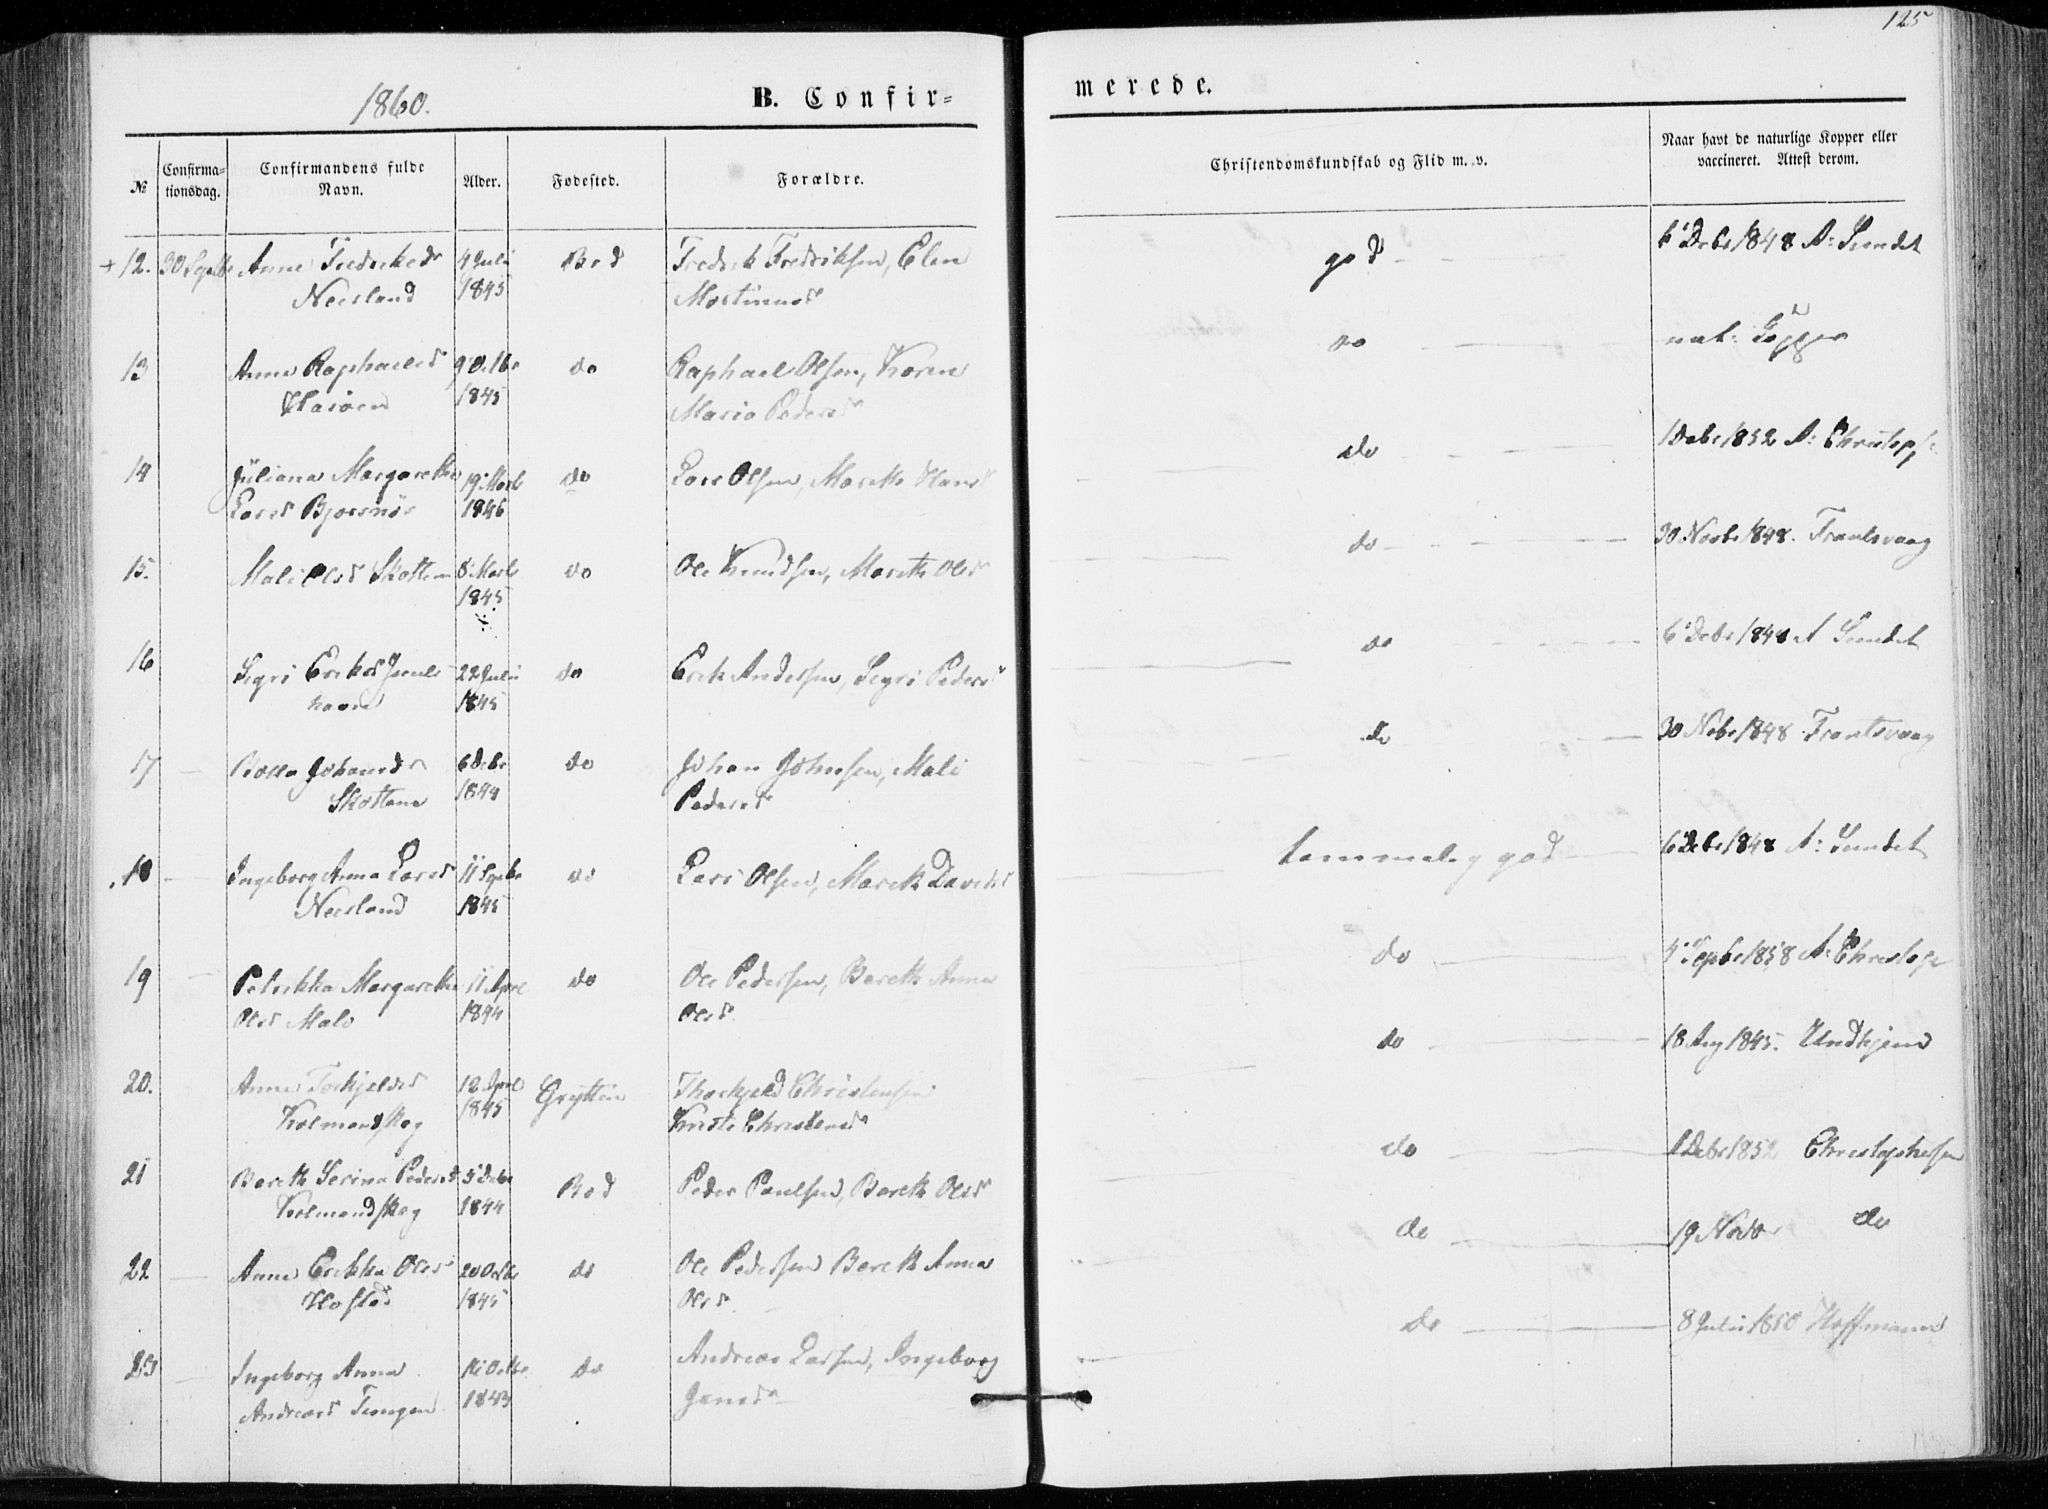 125
1860.
B. Confir=
merede.
№
Confirma-
tionsdag.
Confirmandens fulde
Navn.
Alder.
Fødested.
Forældre.
Christendomskundskab og Flid m. v.
Naar havt de naturlige Kopper eller
vaccineret. Attest derom.
+12. 30 Septbr Anne Fredriksd 4 Juli Bod Fredrik Fredriksen, Elen god 6 Debr 1848 A: Sundet
Neesland 1845
13 Anne Raphaelsd 9 Octbr do Raphael Olsen, Karen do nat: Kopper
Harøen 1845 Maria Pedersd
14 Juliana Margarethe 19 Marts do Lars Olsen, Mareth Hansd do 1 Debr 1852 A: Christoph
Larsd Bjørnør 1846
15. Mali Olsd Skotten 8 Marts do Ole Knudsen, Mareth Olsd do 30 Novbr 1848. Frantsvaag
1845
16 Sigri Eriksd 22 Juli do Erik Andersen, Sigri Pedersd do 6 Debr 1848 A Sundet
1845
17 Johansd 6 Debr do Johan Johnsen, Mali do 30 Nobr 1848 Frantsvaag
1844 Pedersd
18 Ingeborg Anna Larsd 11 Sepbr do Lars Olsen, Mareth Davidsd temmelig god 6 Debr 1848 A: Sundet
Neesland 1845
19 Petrikka Margarethe 11 April do Ole Pedersen, Bereth Anna do 5 Sepbr 1858 A: Christoph
Olsd Malo 1844 Olsd
20. Anne Torkjeldsd 12 April Grytten Thorkjeld Christensen do 18 Aug 1845. Undhjem
Kolmandskog 1845 Kristi Christensd
21 Bereth Serina Pedersd 5 Debr Bod Peder Paulsen, Bereth Olsd do 1 Debr 1852 Christophersen
Kolmandskog 1844
22 Anne Erikka Olsd 20 Octbr do Ole Pedersen Bereth Anna do 19 Novbr do
Hostad 1845 Olsd
23 Ingeborg Anna 16 Octbr do Andreas Larsen, Ingeborg do 8 Juli 1850 Hoffmann
Andreasd 1843 Jensd